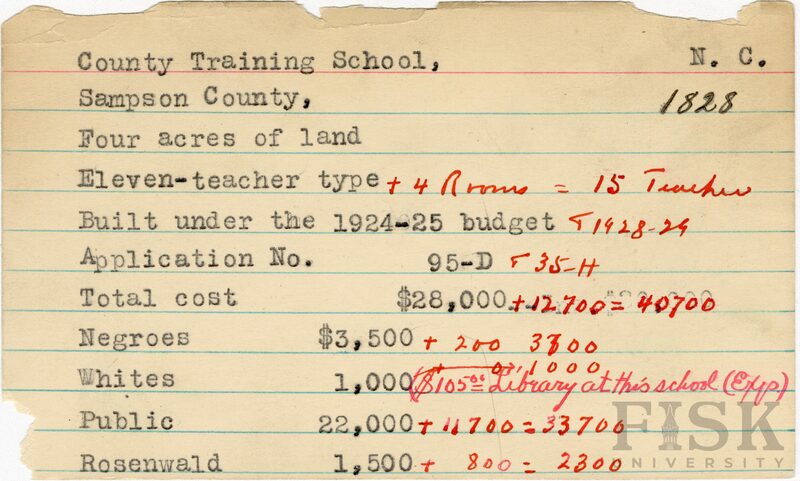 County Training School, N. C.
Sampson County, 1828
Four acres of land
Eleven-teacher type + 4 Rooms = 15 Teacher
Built under the 1924-25 budget & 1928-29
Application No. 95-D & 35-H
Total cost $28,000 + 12700 = 40700
Negroes $3,500 + 200 3700
+ 0 1000
Whites 1,000 ($105.00 = Library at this school (Exp)
Public 22,000 + 11700 = 33700
Rosenwald 1,500 + 800 = 2300
FISK
UNIVERSITY